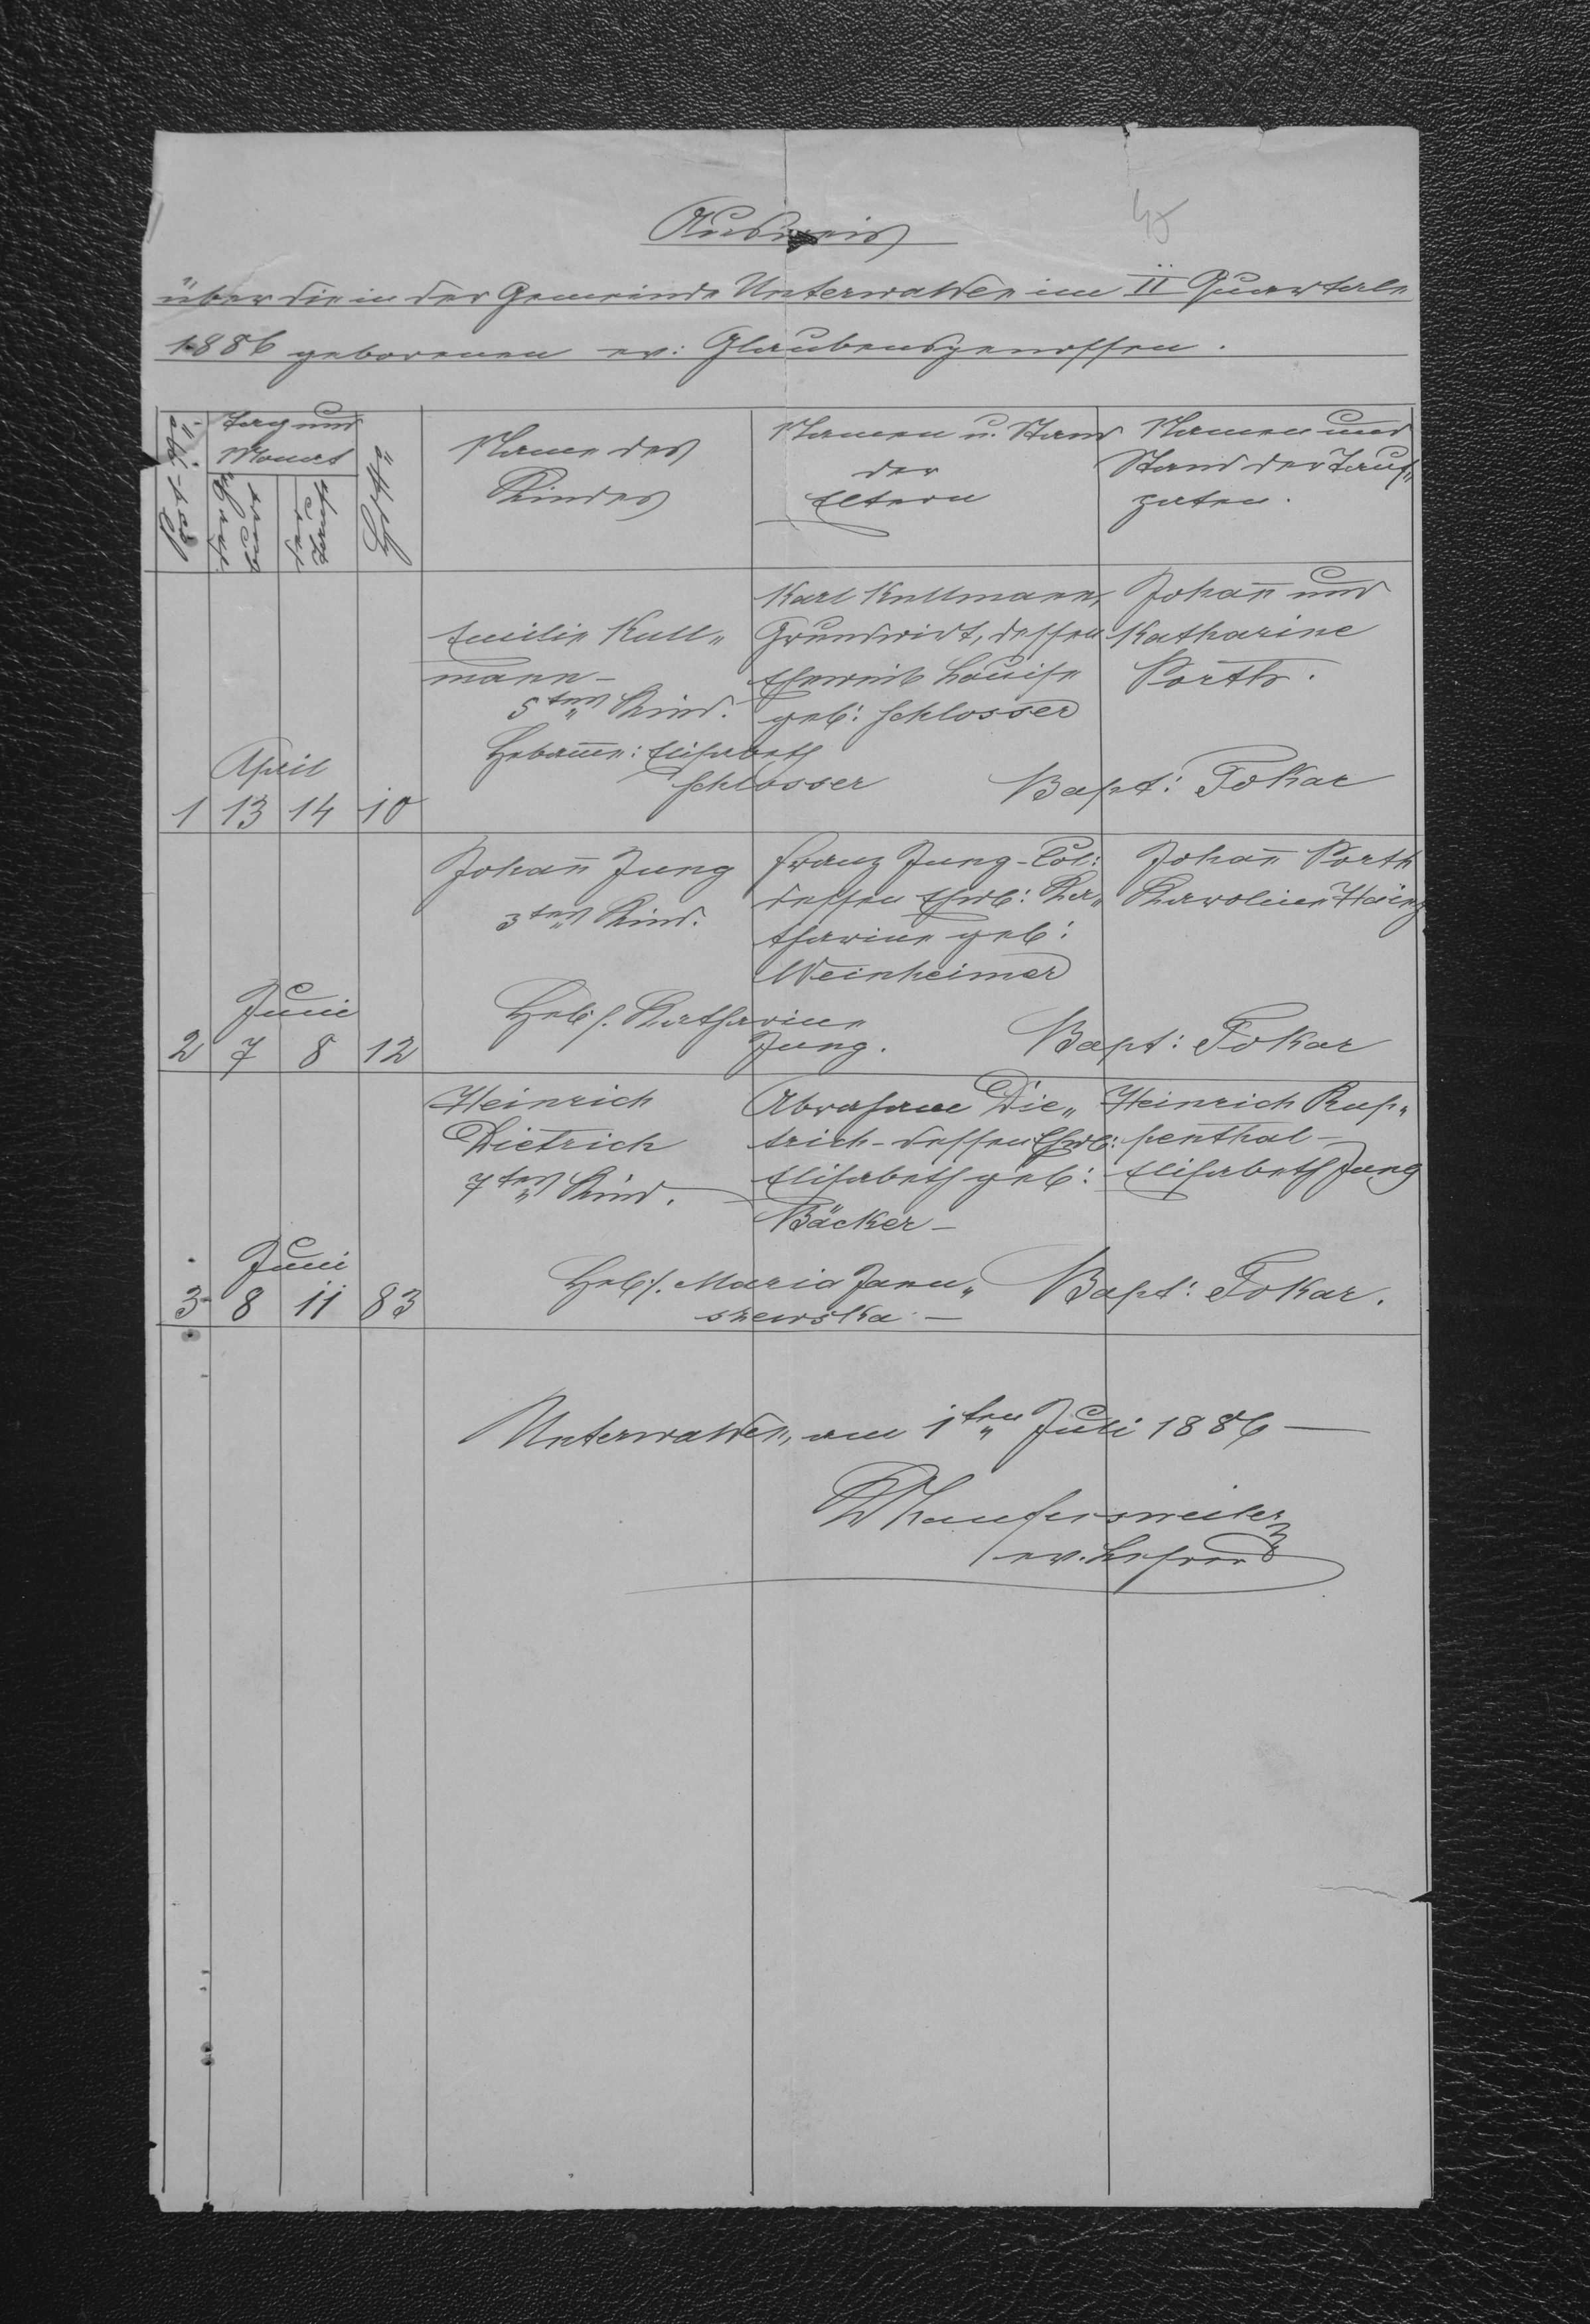 45
Ausweis
über die in der Gemeinde Unterwalden im II Quartale
1886 geborenen ev: Glaubensgenossen.
Post-№
Tag und
Monat
der Ge-
burt
der
Taufe
Hs №
Name des
Kindes
Namen u. Stand
der
Eltern
Namen und
Stand der Tauf„
paten.
April
1 13 14 10
Emilie Kull„
mann-
5tes Kind.
Hebame: Elisabeth
Schlosser
Karl Kullmann,
Grundwirt, dessen
Eheweib Louise
geb: Schlosser
Johañ und
Katharine
Porth.
Bapt: Fokar
Juni
2 7 8 12
Johañ Jung
3tes Kind.
Heb:/. Katharine
Jung.
Franz Jung-Col:
dessen Ehwb: Ka„
tharine geb:
Weinheimer
Johañ Porth
Karoline Heinz
Bapt: Fokar
Juni
3 8 11 83
Heinrich
Dietrich
7tes Kind.
Heb:/. Maria Janu„
szewska -
Abraham Die„
trich - dessen Ehwb:
Elisabeth geb:
Bäcker -
Heinrich Rup„
penthal -
Elisabeth Jung
Bapt: Fokar.
Unterwalden, am 1ten Juli 1886 -
ev. Lehrer